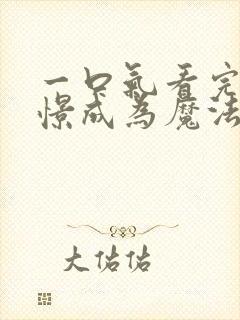 一口氣看完
憬成為魔法
大佑佑